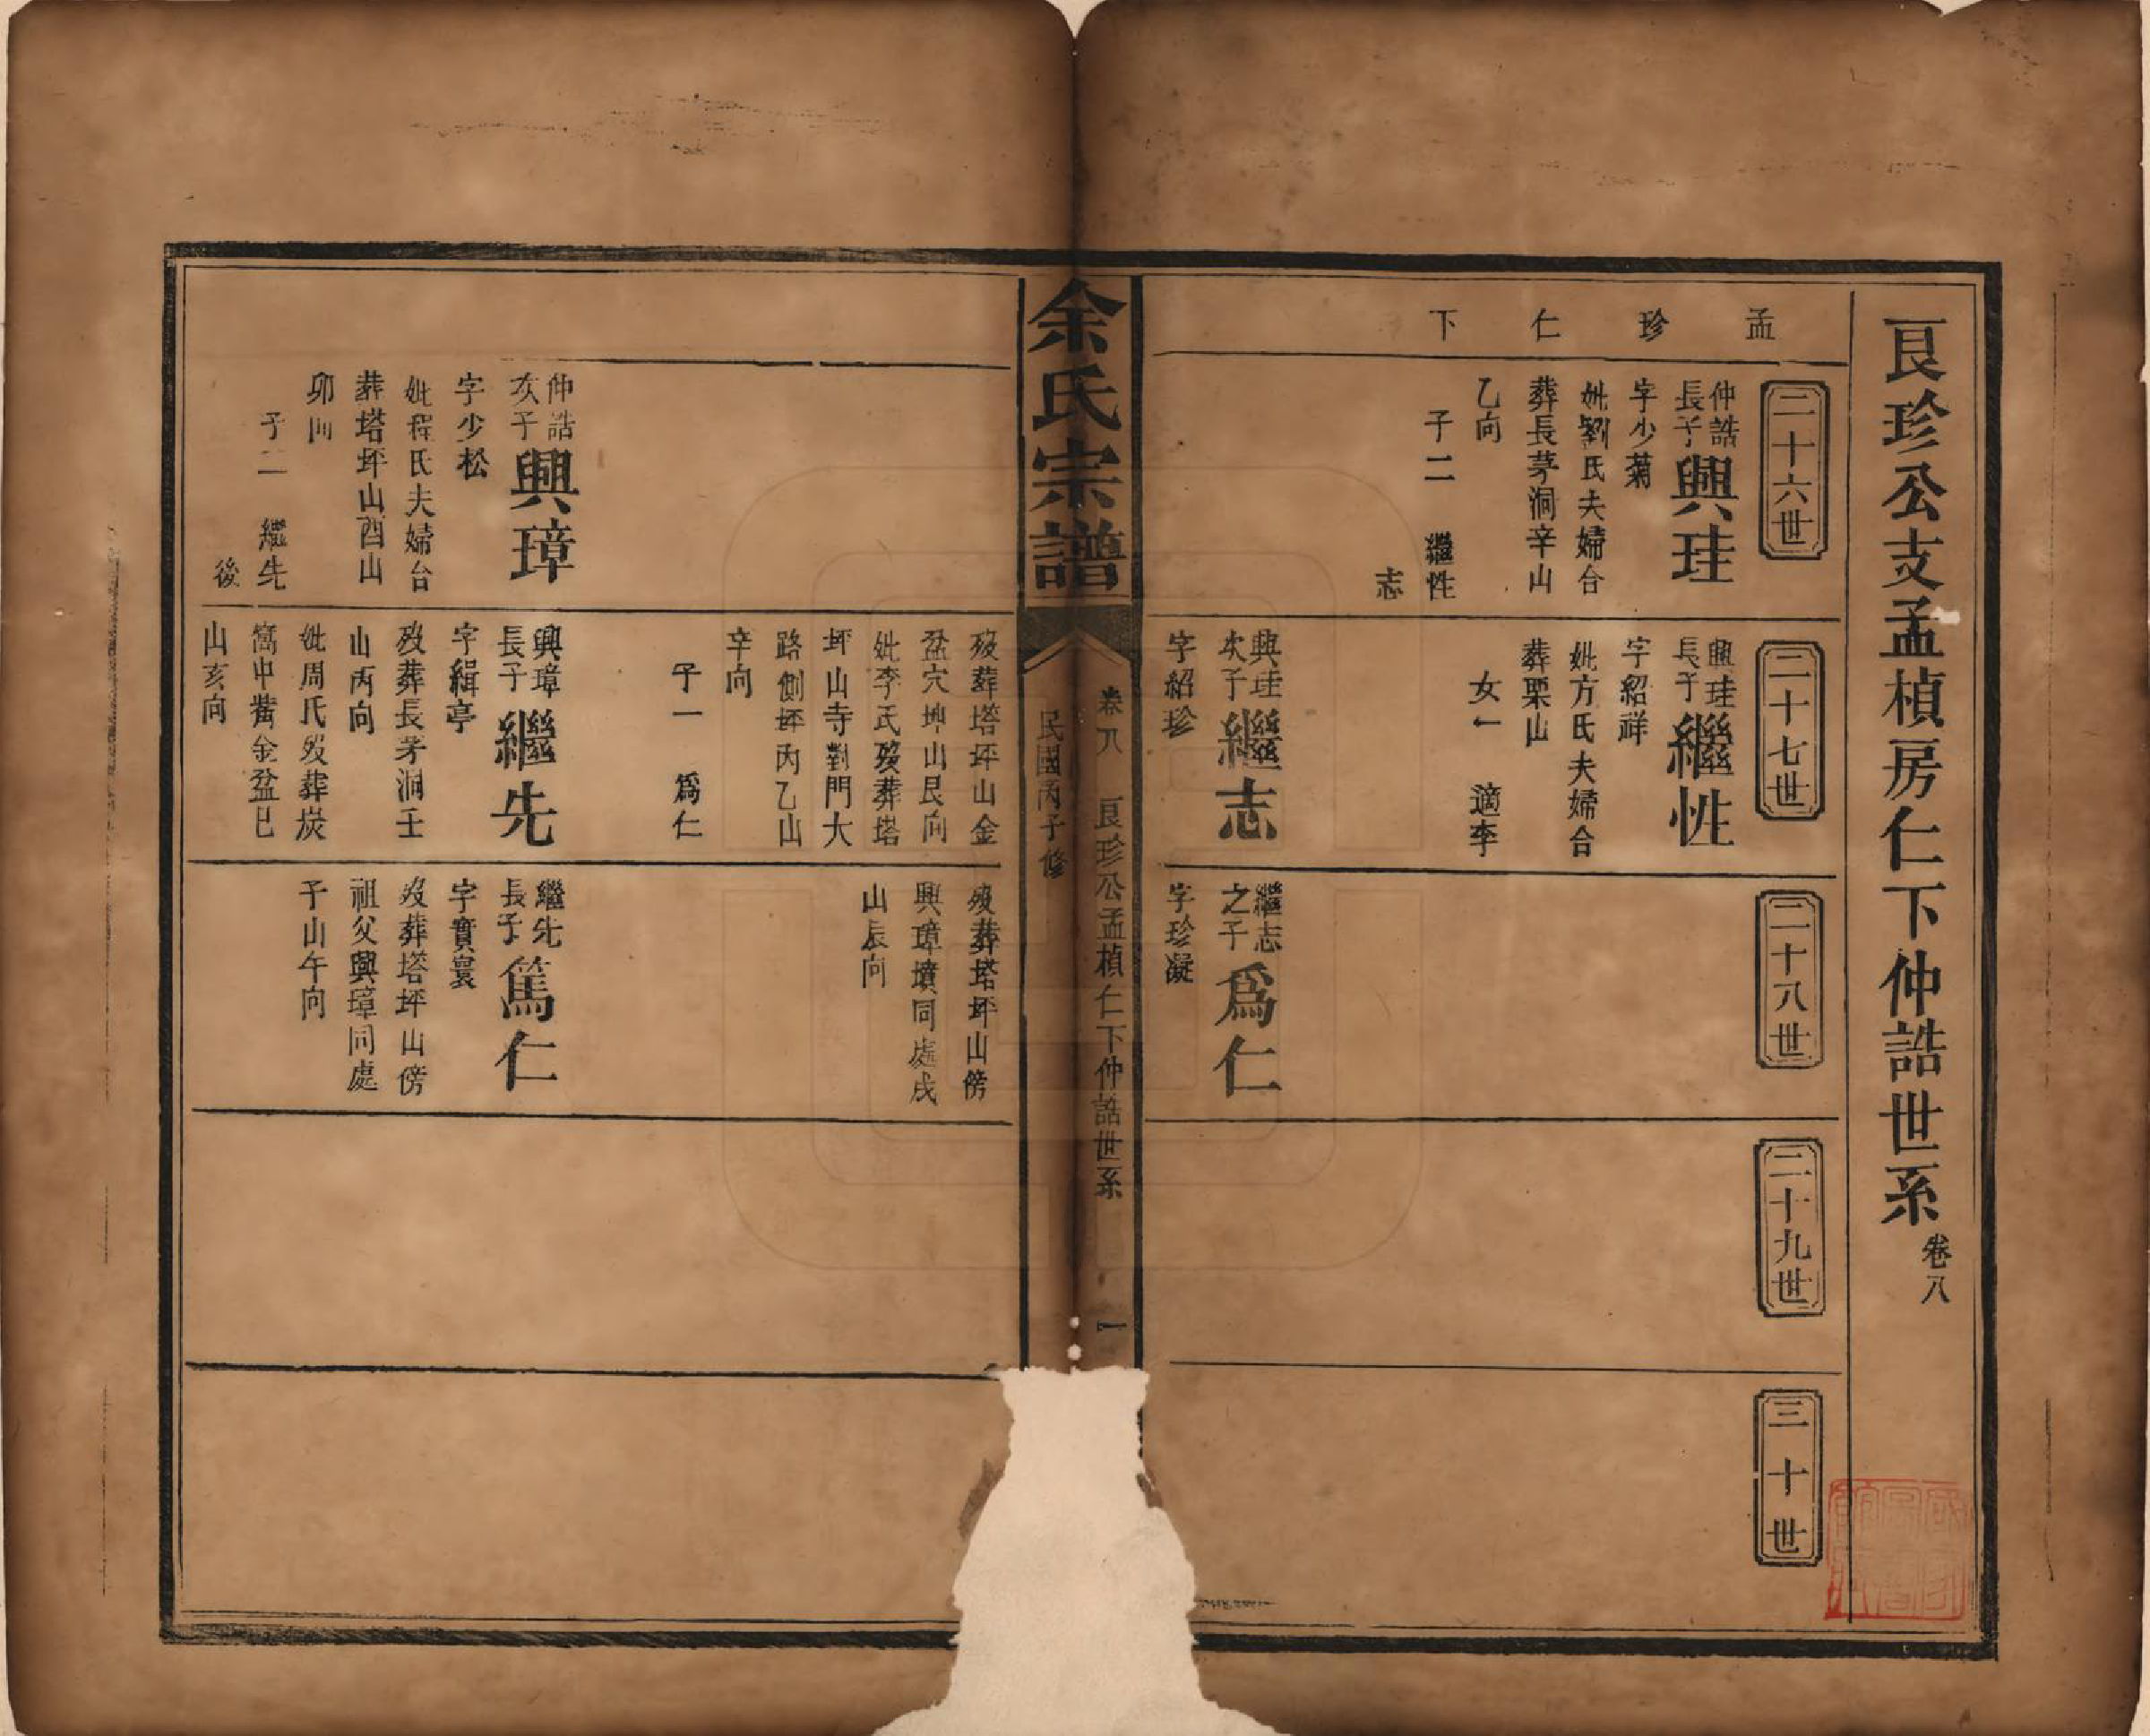 良珍公支孟楨房仁下仲誥世系
卷八
孟珍仁下
二十六世
仲誥
長子
興珪
字少菊
妣劉氏夫婦合
葬長茅洞辛山
乙向
子二 繼性
志
二十七世
興珪
長子
繼性
字紹祥
妣方氏夫婦合
葬栗山
女一 適李
興珪
次子
繼志
字紹珍
二十八世
繼志
之子
爲仁
字珍凝
二十九世
三十世
余氏宗譜
卷八 良珍公孟楨仁下仲誥世系 一
民國丙子修
仲誥
次子
興璋
字少松
妣程氏夫婦合
葬塔坪山酉山
卯向
子二 繼先
後
歿葬塔坪山金
盆穴坤山艮向
妣李氏歿葬塔
坪山寺對門大
路側坪內乙山
辛向
子一 爲仁
興璋
長子
繼先
字緝亭
歿葬長茅洞壬
山丙向
妣周氏歿葬炭
窩中嘴金盆巳
山亥向
歿葬塔坪山傍
興璋墳同處戌
山辰向
繼先
長子
篤仁
字實寰
歿葬塔坪山傍
祖父興璋同處
子山午向